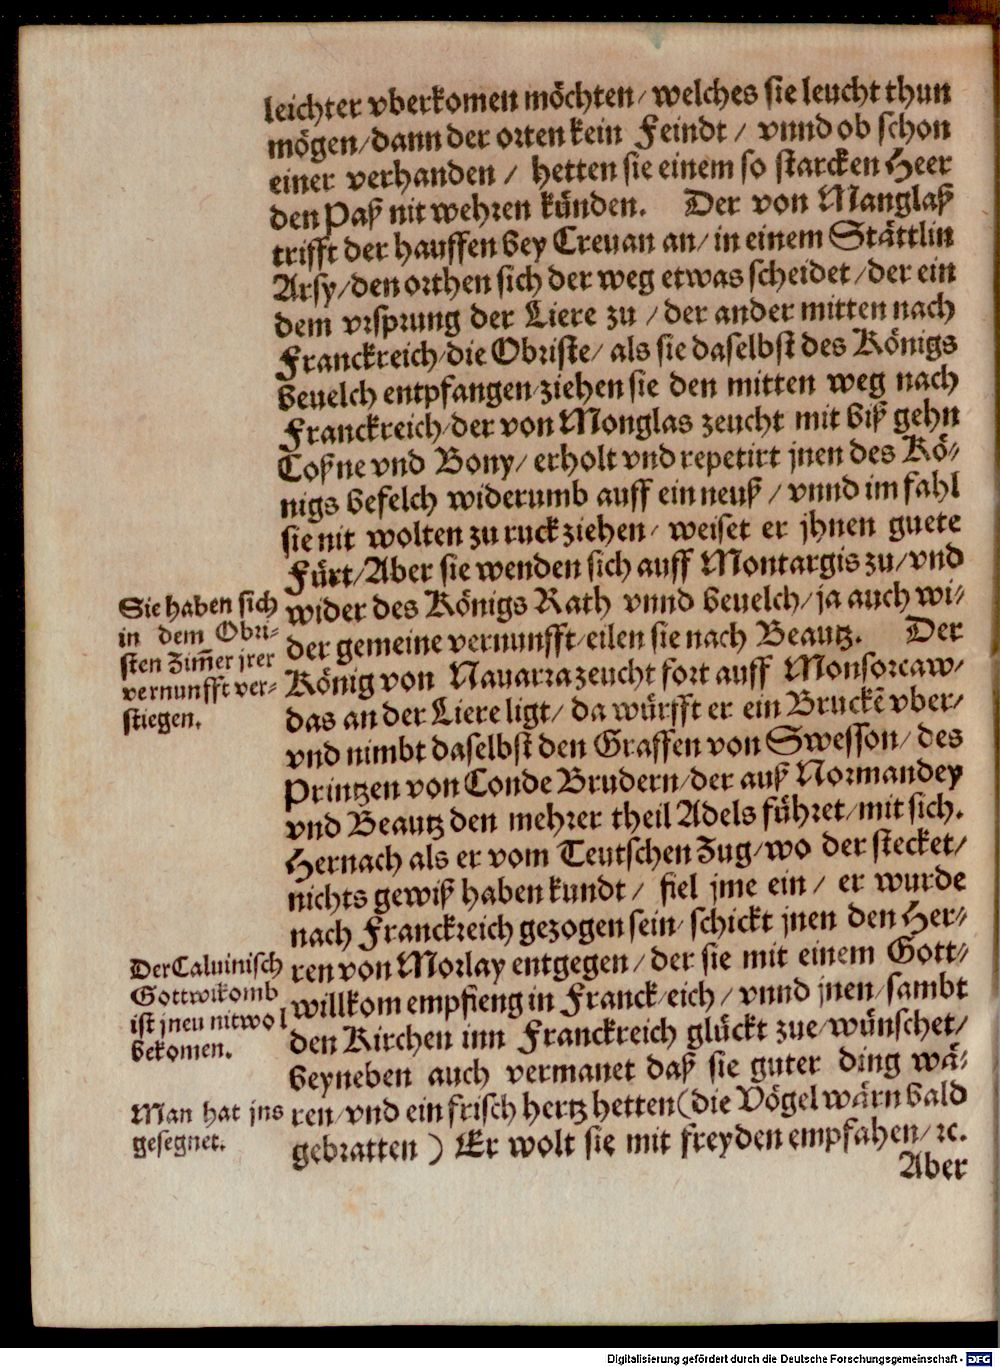 leichter vberkomen möchten/ welches sie leucht thun
mögen/dann der orten kein Feindt / vnnd ob schon
einer verhanden / hetten sie einem so starcken Heer
den Paß nit wehren künden. Der von Manglaß
trifft der hauffen bey Creuan an/ in einem Stättlin
Arsy/den orthen sich der weg etwas scheidet/der ein
dem vrsprung der Liere zu / der ander mitten nach
Franckreich/die Obriste/ als sie daselbst des Königs
beuelch entpfangen/ziehen sie den mitten weg nach
Franckreich/der von Monglas zeucht mit biß gehn
Coßne vnd Bony/ erholt vnd repetirt jnen des Kö-
nigs befelch widerumb auff ein neuß / vnnd im fahl
sie nit wolten zu ruck ziehen/ weiset er jhnen guete
Fürt/Aber sie wenden sich auff Montargis zu/vnd
wider des Königs Rath vnnd beuelch/ja auch wi-
der gemeine vernunfft/eilen sie nach Beautz. Der
König von Nauarra zeucht fort auff Monsorcaw/
das an der Liere ligt/ da würfft er ein Bruckē vber/
vnd nimbt daselbst den Graffen von Swesson/ des
Printzen von Conde Brudern/der auß Normandey
vnd Beautz den mehrer theil Adels führet/mit sich.
Hernach als er vom Teutschen Zug/wo der stecket/
nichts gewiß haben kundt/ fiel jme ein/ er wurde
nach Franckreich gezogen sein/ schickt jnen den Her-
ren von Morlay entgegen/ der sie mit einem Gott-
willkom empfieng in Franck eich/ vnnd jnen/sambt
den Kirchen inn Franckreich glückt zue/wünschet/
beyneben auch vermanet daß sie guter ding wä-
ren/vnd ein frisch hertz hetten(die Vögel wärn bald
gebratten ) Er wolt sie mit freyden empfahen/ꝛc.
Aber
Sie haben sich
in dem Obri-
sten Zim̄er jrer
vernunfft ver-
stiegen.
Der Caluinisch
Gottwikomb
ist jneu nit wol
bekomen.
Man hat jns
gesegnet.
Digitalisierung gefördert durch die Deutsche Forschungsgemeinschaft - DFG